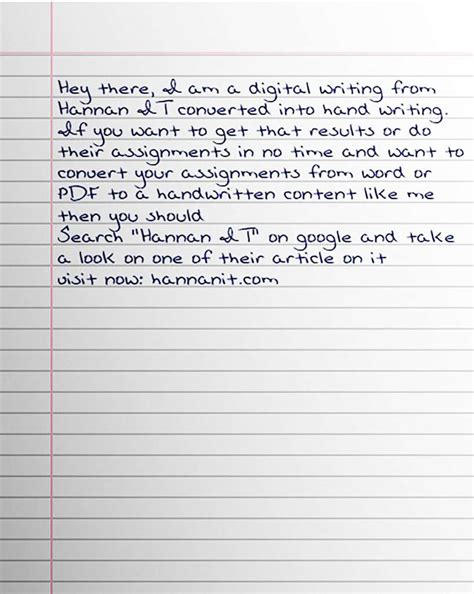 Hey there, I am a digital writing from
Hannan IT converted into hand writing.
If you want to get that results or do
their assignments in no time and want to
convert your assignments from word or
PDF to a handwritten content like me
then you should
Search "Hannan IT" on google and take
a look on one of their article on it
visit now: hannanit.com